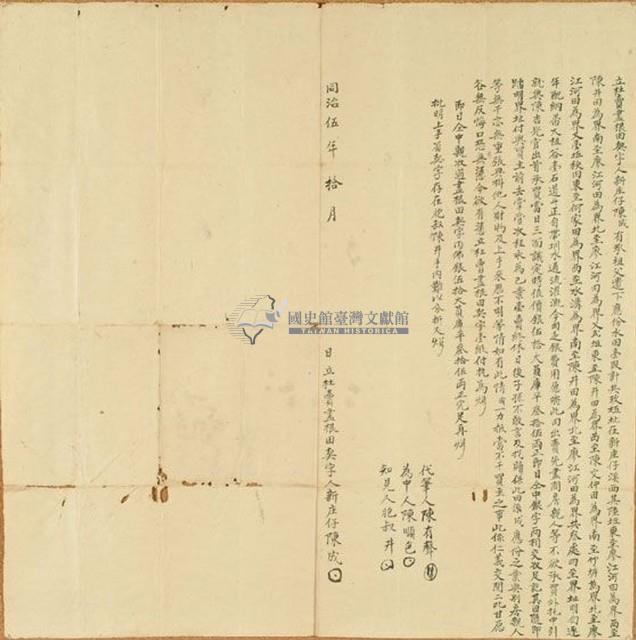 立杜賣盡根田契字人新庄仔陳成有承祖父遺下應份水田壹段計共玖坵址在新庄仔溪面其陸坵東至廖江河田為界西至
陳井田為界南至廖江河田為界北至廖江河田為界又貳坵東至陳井田為界西至陳文仲田為界南至竹脚為界北至廖
江河田為界又壹坵秧田東至何家田為界西至水溝為界南至陳井田為界北至廖江河田為界共叁處四至界址明白逐
年配納番大租谷壹石道斗正自帶圳水通流灌溉今因乏銀費用愿將此田出賣先盡問房親人等不欲承買外托中引
就與陳吉記官出首承買當日三面議定時值價銀伍拾大員庫平叁拾伍兩正即日仝中銀字兩相交收足訖其田隨即
踏明界址付與買主前去掌管收租永為己業壹賣終休日後子孫不敢言及找贖係此田係成應份之業與別房親人
等無干亦無重張典掛他人財物及上手來歷不明等情如有此情成一力抵當不干買主之事此係仁義交關二比甘愿
各無反悔口恐無憑今欲有憑立杜賣盡根田契字壹紙付執為炤
即日仝中親收過盡根田契字內佛銀伍拾大員庫平叁拾伍兩正完足再炤
批明上手舊契字存在胞叔陳井手內難以分拆又炤
代筆人陳有聲
為中人陳順包
知見人胞叔井
同治伍年拾月 日立杜賣盡根田契字人新庄仔陳成
國史館臺灣文獻館
TAIWAN HISTORICA